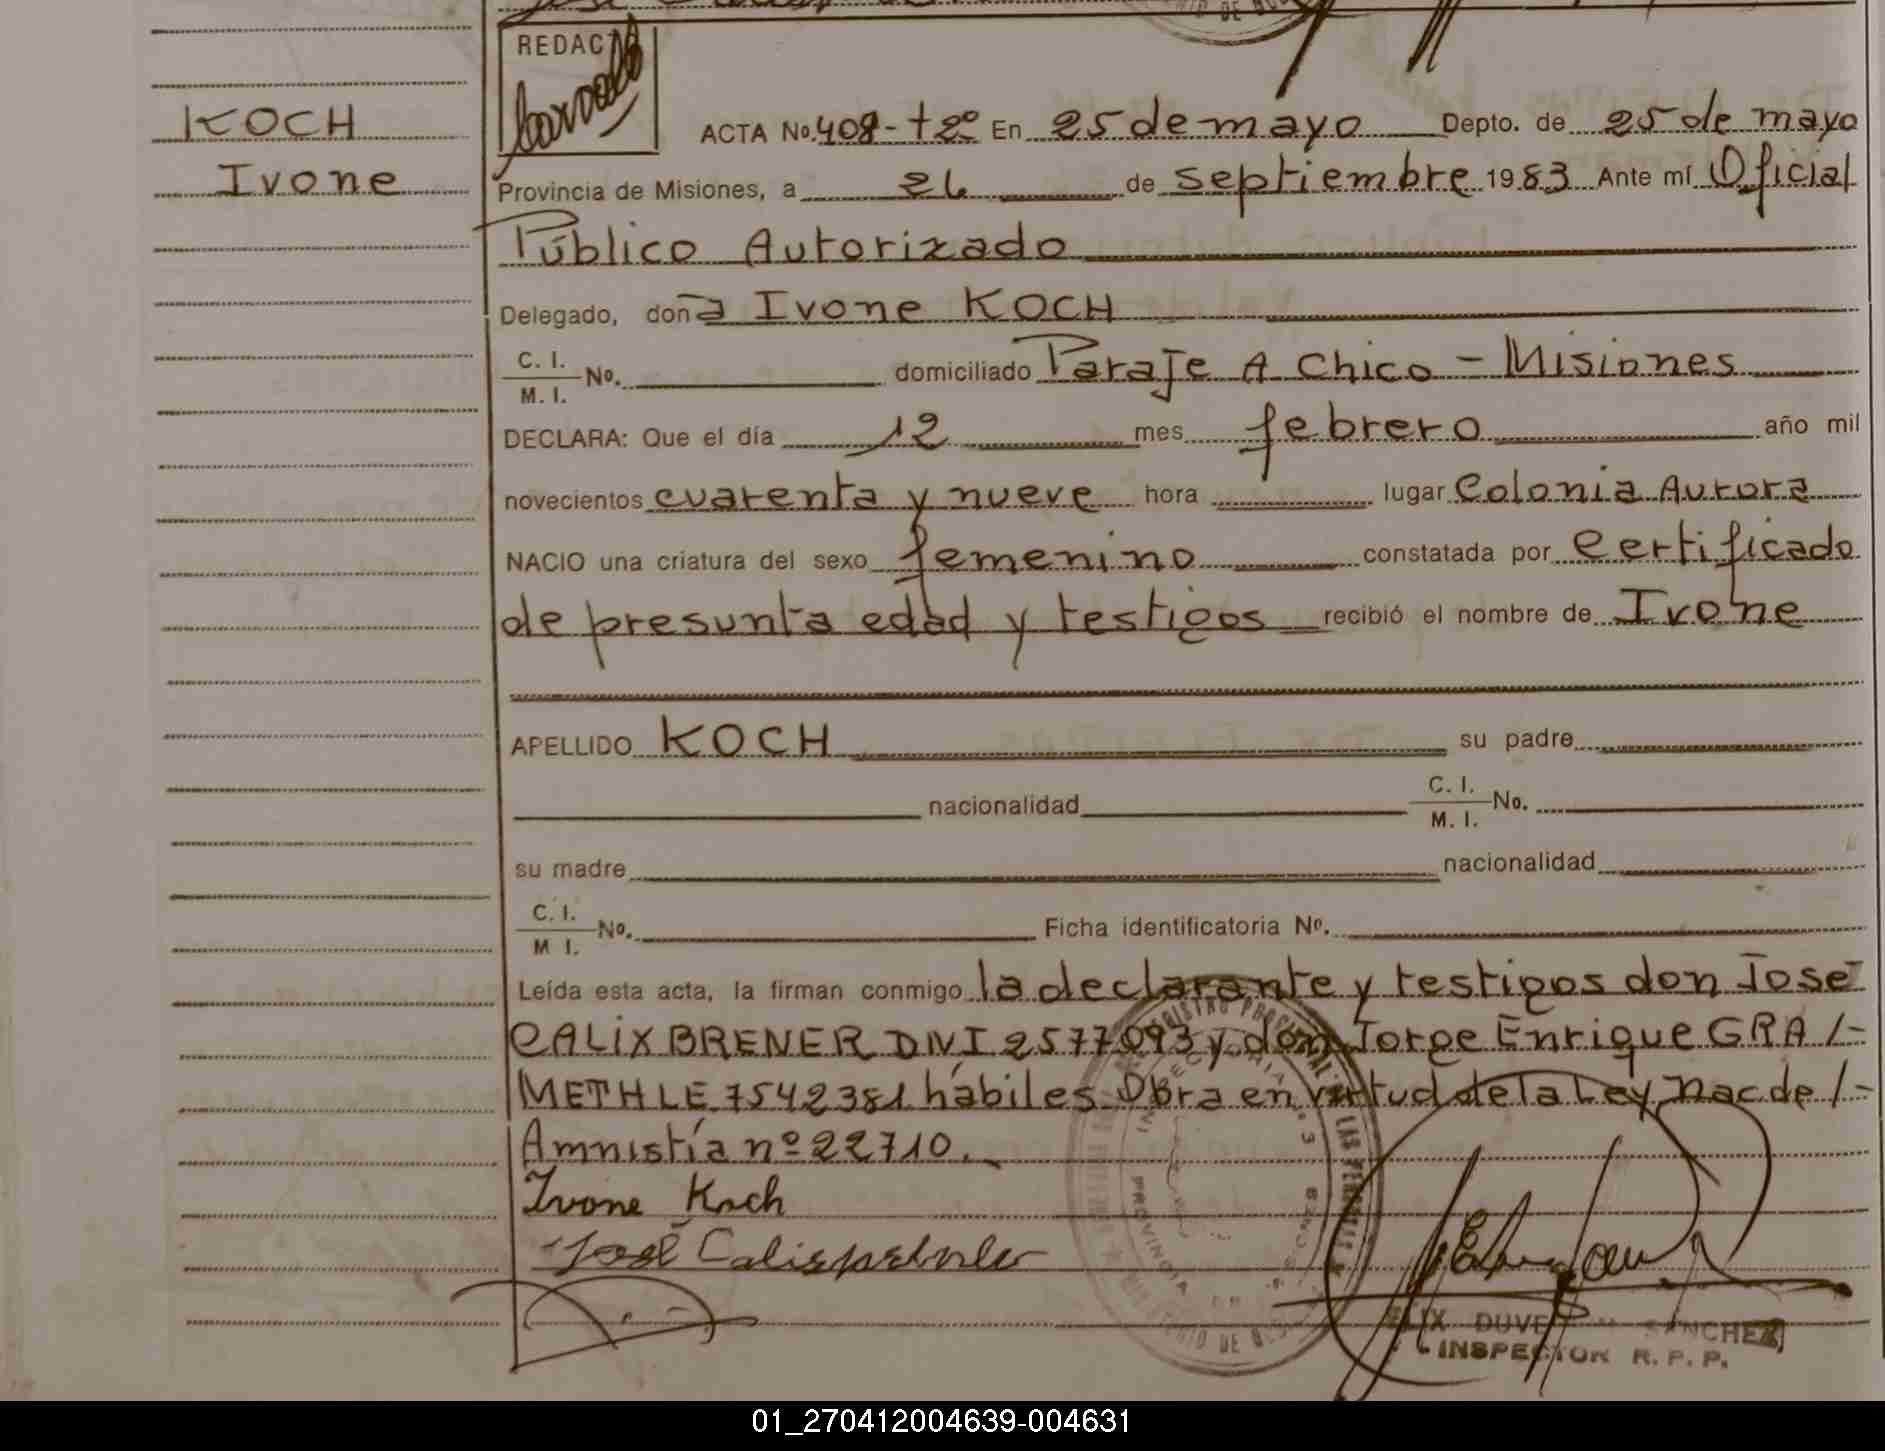 REDACT
KOCH
Ivone
ACTA No. 408-tº2º En 25 de mayo Depto. de 25 de mayo
Provincia de Misiones, a 26 de septiembre 1983 Ante mí Oficial
Público Autorizado
Delegado, doña Ivone KOCH
C. I.
M. I. No. domiciliado Paraje A Chico - Misiones
DECLARA: Que el día 12 mes febrero año mil
novecientos cuarenta y nueve hora lugar Colonia Aurora
NACIO una criatura del sexo femenino constatada por Certificado
de presunta edad y testigos recibió el nombre de Ivone
APELLIDO KOCH su padre
nacionalidad C. I.
M. I. No.
su madre nacionalidad
C. I.
M I. No. Ficha identificatoria Nº.
Leída esta acta, la firman conmigo la declarante y testigos don José
CALIXBRENER DNI 2577093 y don Jorge Enrique GRA/-
METH LE 7542381 hábiles Obra en virtud de la Ley Nac de/-
Amnistía nº 22710.
Ivone Koch
SANCHEZ
INSPECTOR R. P. P.
01_270412004639-004631